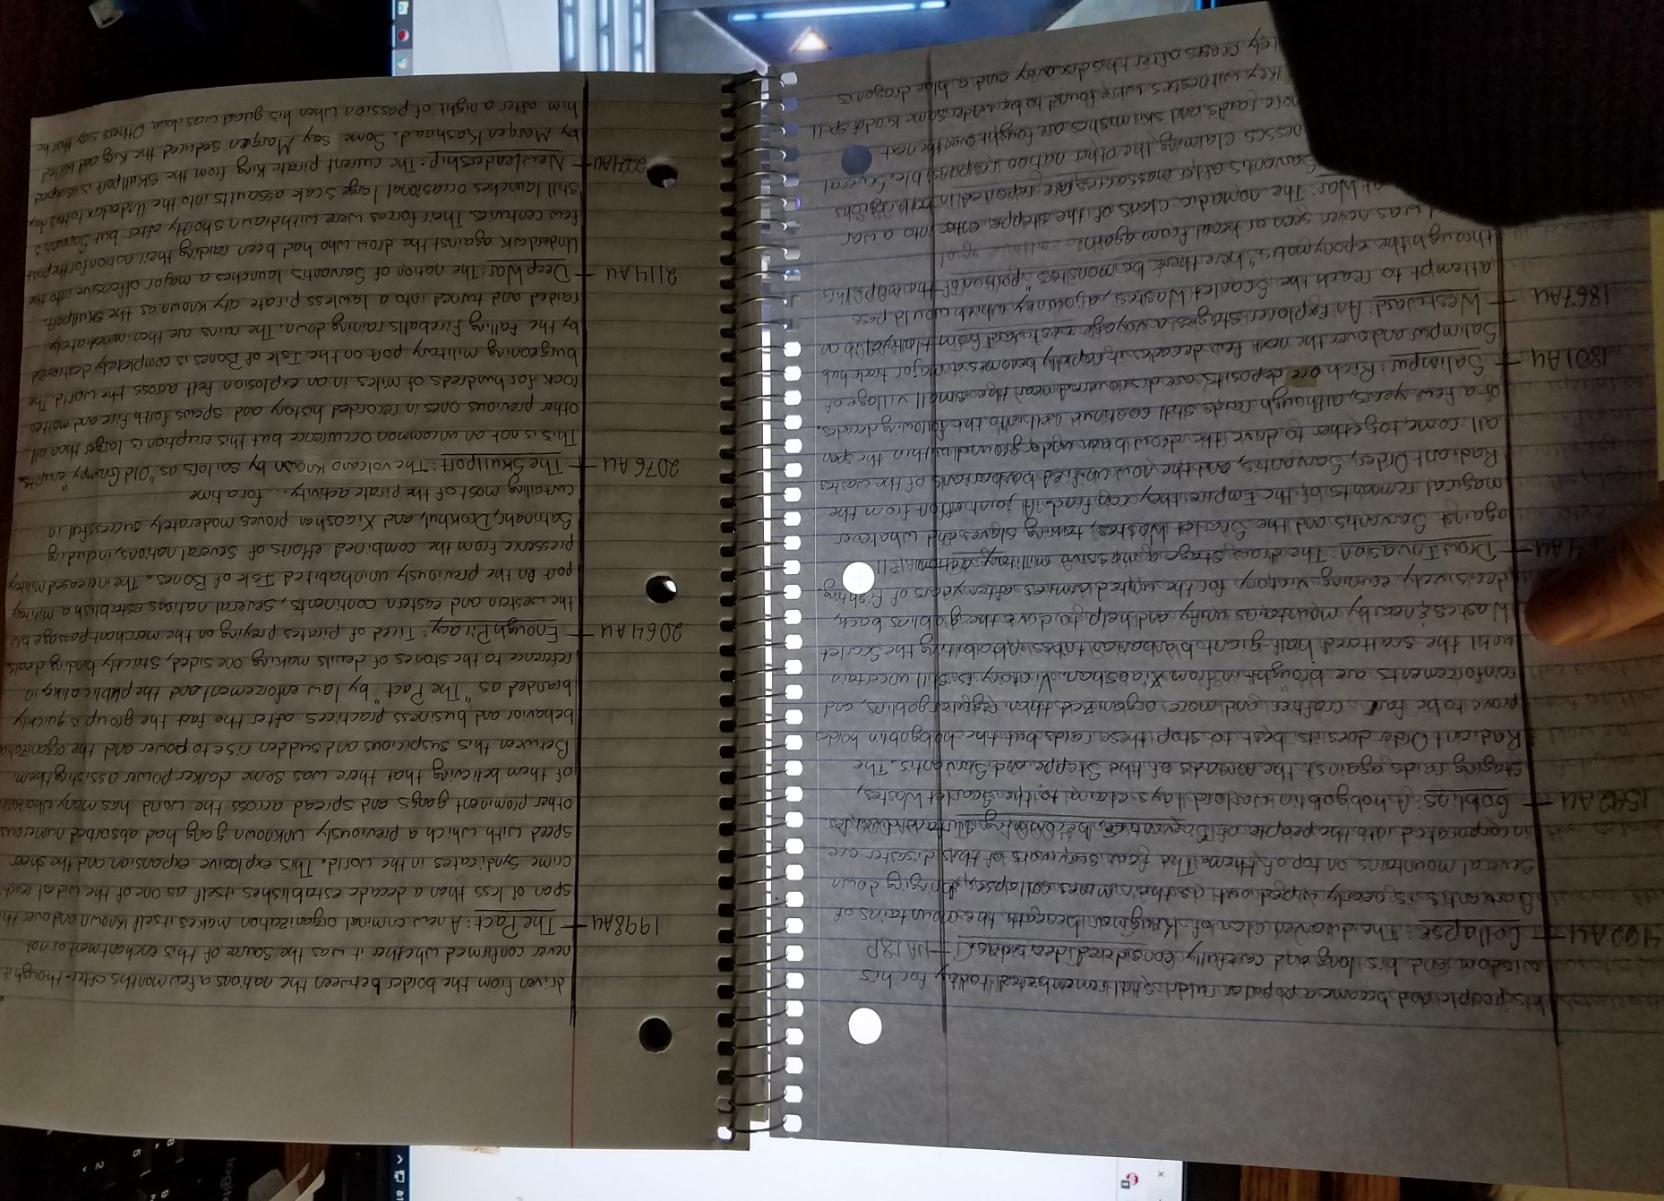 his people and became a popular ruler still remembered today for his
wisdom and his long and carefully considered ideas
Collapse: The dwarven clan of Krugman beneath the mountains of
Sarvantis is nearly wiped out as their mines collapse, bringing down
several mountains on top of them. The few survivors of this disaster are
incorporated into the people of
1592 AU Goblins: A hobgoblin warlord lays claim to the Scarlet Wastes,
staging raids against the nomads of the Steppe and Sarvantis. The
Radiant Order does its best to stop these raids but the hobgoblin holds
prove to be far craftier and more organized than regular goblins, and
reinforcements are brought in from Xiaoshan. Victory is still uncertain
until the scattered half-giant barbarian tribes inhabiting the Scarlet
Wastes nearby mountains unify and help to drive the goblins back,
decisively earning victory for the united armies after years of fighting
Drow Invasion: The drow stage a massive military action
against Sarvantis and the Scarlet Wastes, taking slaves and whatever
magical remnants of the Empire they can find. A joint effort from the
Radiant Order, Sarvantis, and the now unified barbarians of the wastes
all come together to drive the drow back underground within the span
of a few years, although raids still continue until the following decade.
1801 AU Salimpur: Rich ore deposits are discovered near the small village of
Salimpur and over the next few decades it rapidly becomes a major trade hub
1867 AU Westward: An Explorer stages a voyage westward from in an
attempt to reach the Scarlet Wastes, a journey which would pass
through the eponymous "here there be monsters" portion of the map. This
was never seen or heard from again
War: The nomadic clans of the steppe enter into a war
Sarvantis after massacres are reported in both regions
claiming the other nation responsible. Several
more raids and skirmishes are fought over the next
key witnesses were found to be under some kind of spell
ceases after this discovery and a blue dragon is
driven from the border between the nations a few months after-though it
never confirmed whether it was the source of this enchantment or not
1998 AU The Pact: A new criminal organization makes itself known and over the
span of less than a decade establishes itself as one of the
crime syndicates in the world. This explosive expansion and the sheer
speed with which a previously unknown gang had absorbed numerous
other prominent gangs and spread across the world has many who
of them believing that there was some darker power assisting them.
Between this suspicious and sudden rise to power and the
behavior and business practices after the fact the group is quickly
branded as "The Pact" by law enforcement and the public alike, in
reference to the stories of devils making one sided, strictly binding deals
2064 AU Enough Piracy: Tired of pirates preying on the merchant passage
the western and eastern continents, several nations establish a military
port on the previously uninhabited Isle of Bones. The increased military
pressence from the combined efforts of several nations, including
Batinahr, Drokhul, and Xiaoshan proves moderately successful in
curtailing most of the pirate activity... for a time
2076 AU The Skullport: The volcano known by sailors as "Old Grumpy" erupts.
This is not an uncommon occurrence but this eruption is larger than all
other previous ones in recorded history and spews forth fire and molten
rock for hundreds of miles in an explosion felt across the world. The
burgeoning military port on the Isle of Bones is completely destroyed
by the falling fireballs raining down. The ruins are then immediately
raided and turned into a lawless pirate city known as the Skullport.
2114 AU Deep War: The nation of Sarvantis launches a major offensive into the
Underdark against the drow who had been raiding their nation for the past
few centuries. Their forces were withdrawn shortly after but Sarvantis
still launches occasional large scale assaults into the Underdark to this day
New Leadership: The current pirate king from the Skullport is usurped
by Margen Kashaad. Some say Margen seduced the King and killed
him after a night of passion when his guard was down. Others say that he